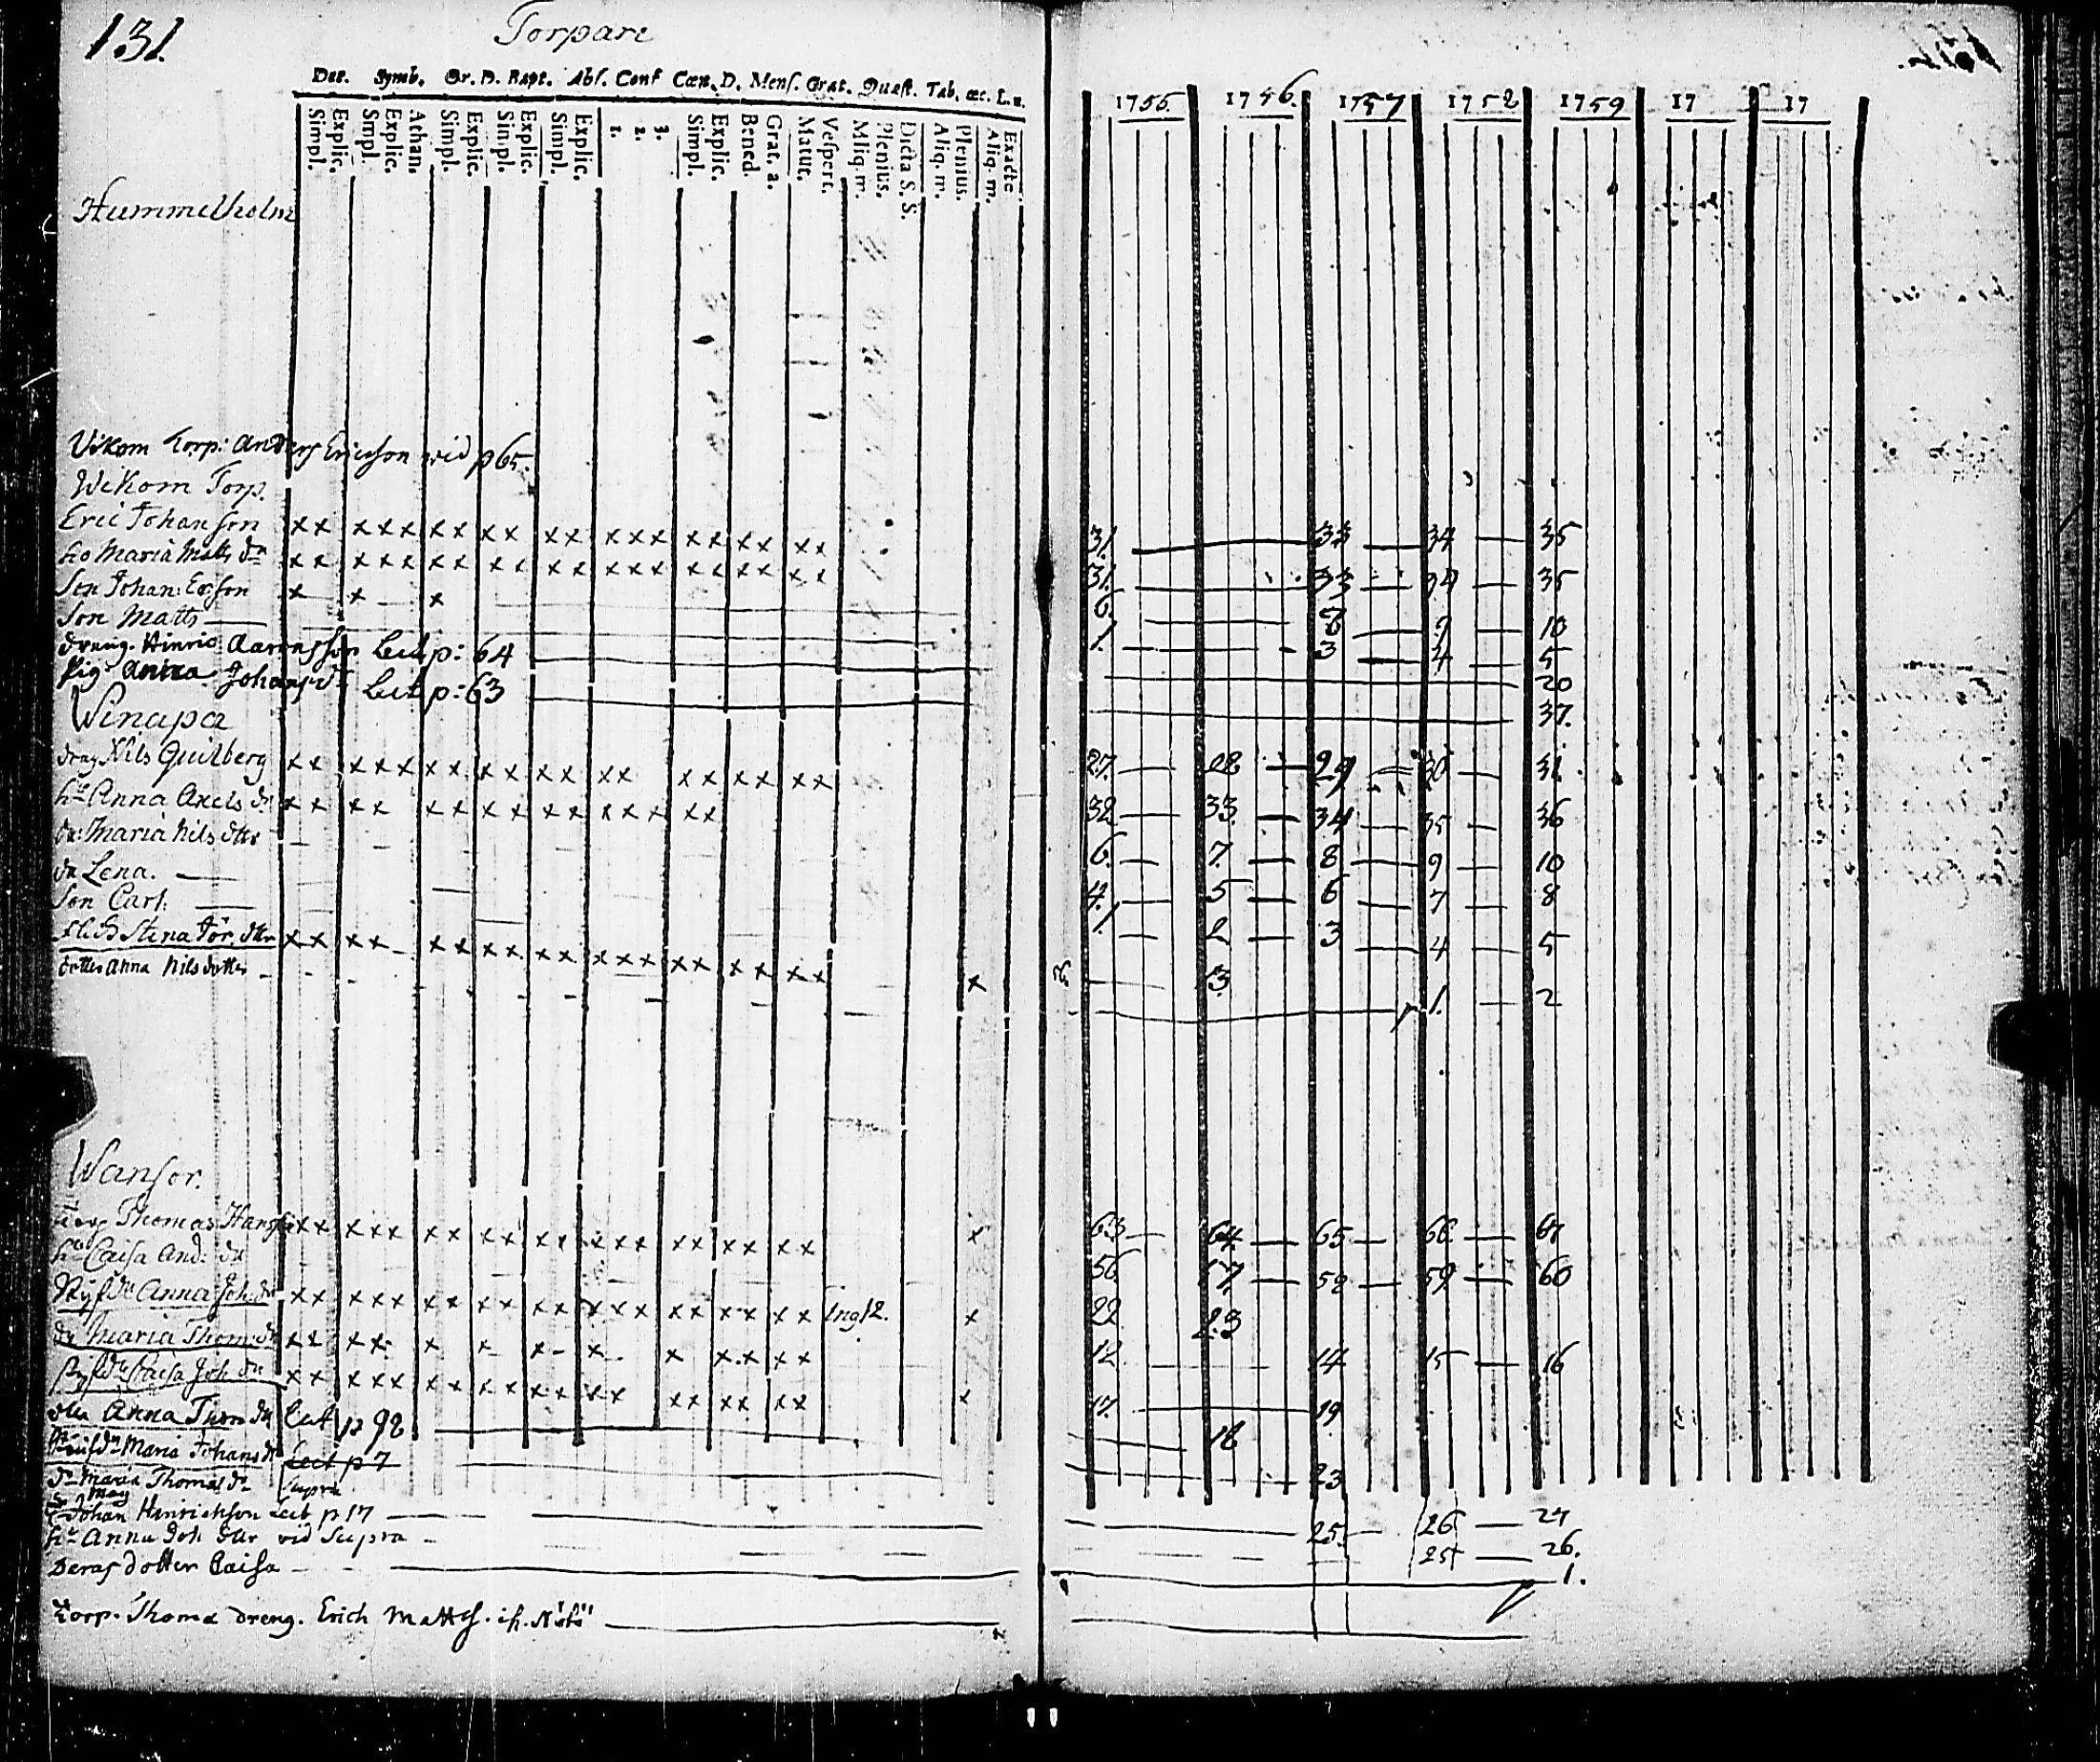 131.
Torpare
Dec. Symb. Or. D. Bapt. Abs. Conf Cœn. D. Mens. Grat. Quæst. Tab. œc. L.
Simpl. Explic. Smpl. Explic. Athan. Simpl. Explic. Simpl. Explic. Simpl. Explic. 1. 2. 3. Simpl. Explic. Bened. Grat. a. Matut. Vespert. Aliq. m. Plenius. Dicta S. S. Aliq. m. Plenius. Aliq. m. Exacte
1756 1756. 1757 1758 1759 17 17
Hummelholm
Wikom Torp: Anders Ericsson vid p 65.
Wikom Torp.
Eric Johanson x x x x x x x x x x x x x x x x x x x x 31 33 34 35
ho Maria Matts dr x x x x x x x x x x x x x x x x x x x x 31. 33 34 35
Son Johan: Erson x x x 6 8 9 10
Son Matts 1. 3 4 5
dreng. Hinric Aaronsson Leit p: 64 20
Pig Anna Johansdr Leit p: 63 37.
Winapa
Nils Qvilberg x x x x x x x x x x x x x x x x x x x 27. 28 29 30 31
hu Anna Axels dr x x x x x x x x x x x x x x x 32 33. 34 35 36
dr: Maria Nils dttr 6. 7 8 9 10
dr Lena. 4. 5 6 7 8
Son Carl: 1 2 3 4 5
Stina Jör. dttr x x x x x x x x x x x x x x x x x x x x 3.
dotter Anna Nils dotter 1. 2
Wansor.
Torp Thomas Hansson x x x x x x x x x x x x x x x x x x x x 63 64 65 66 67
hu Caisa And: dr 56 57 58 59 60
Styfdr Anna Joh: dr x x x x x x x x x x x x x x x x x x x x Ing 12. x 22 23
dr Maria Thom: dr x x x x x x x x x x x x x 12 14 15 16
Styfdr Caisa Joh dr x x x x x x x x x x x x x x x x x x x 17. 19
dtr Anna Thom dr Leit p 92 18
Styfdr Maria Johans dr Leit p 7 23
dr Maria Thomas dr supra
Johan Hinrickson Leit p 17 25 26 27
hu Anna Joh dttr vid Supra 25 26.
Deras dotter Caisa 1.
Torp. Thoma dreng. Erich Matts.